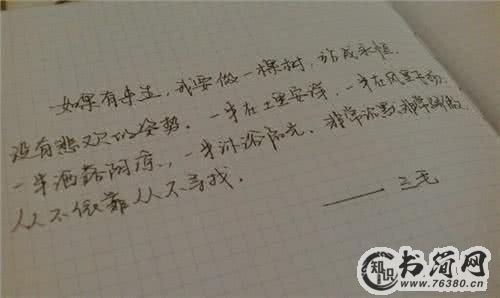 如果有来生，我要做一棵树，站成永恒.
没有悲欢的姿势. 一半在土里安详，一半在风里飞扬
一半洒落阴凉，一半沐浴阳光. 非常沉默.非常骄傲
从不依靠从不寻找.
——三毛
知识
书简网
www.76380.cn